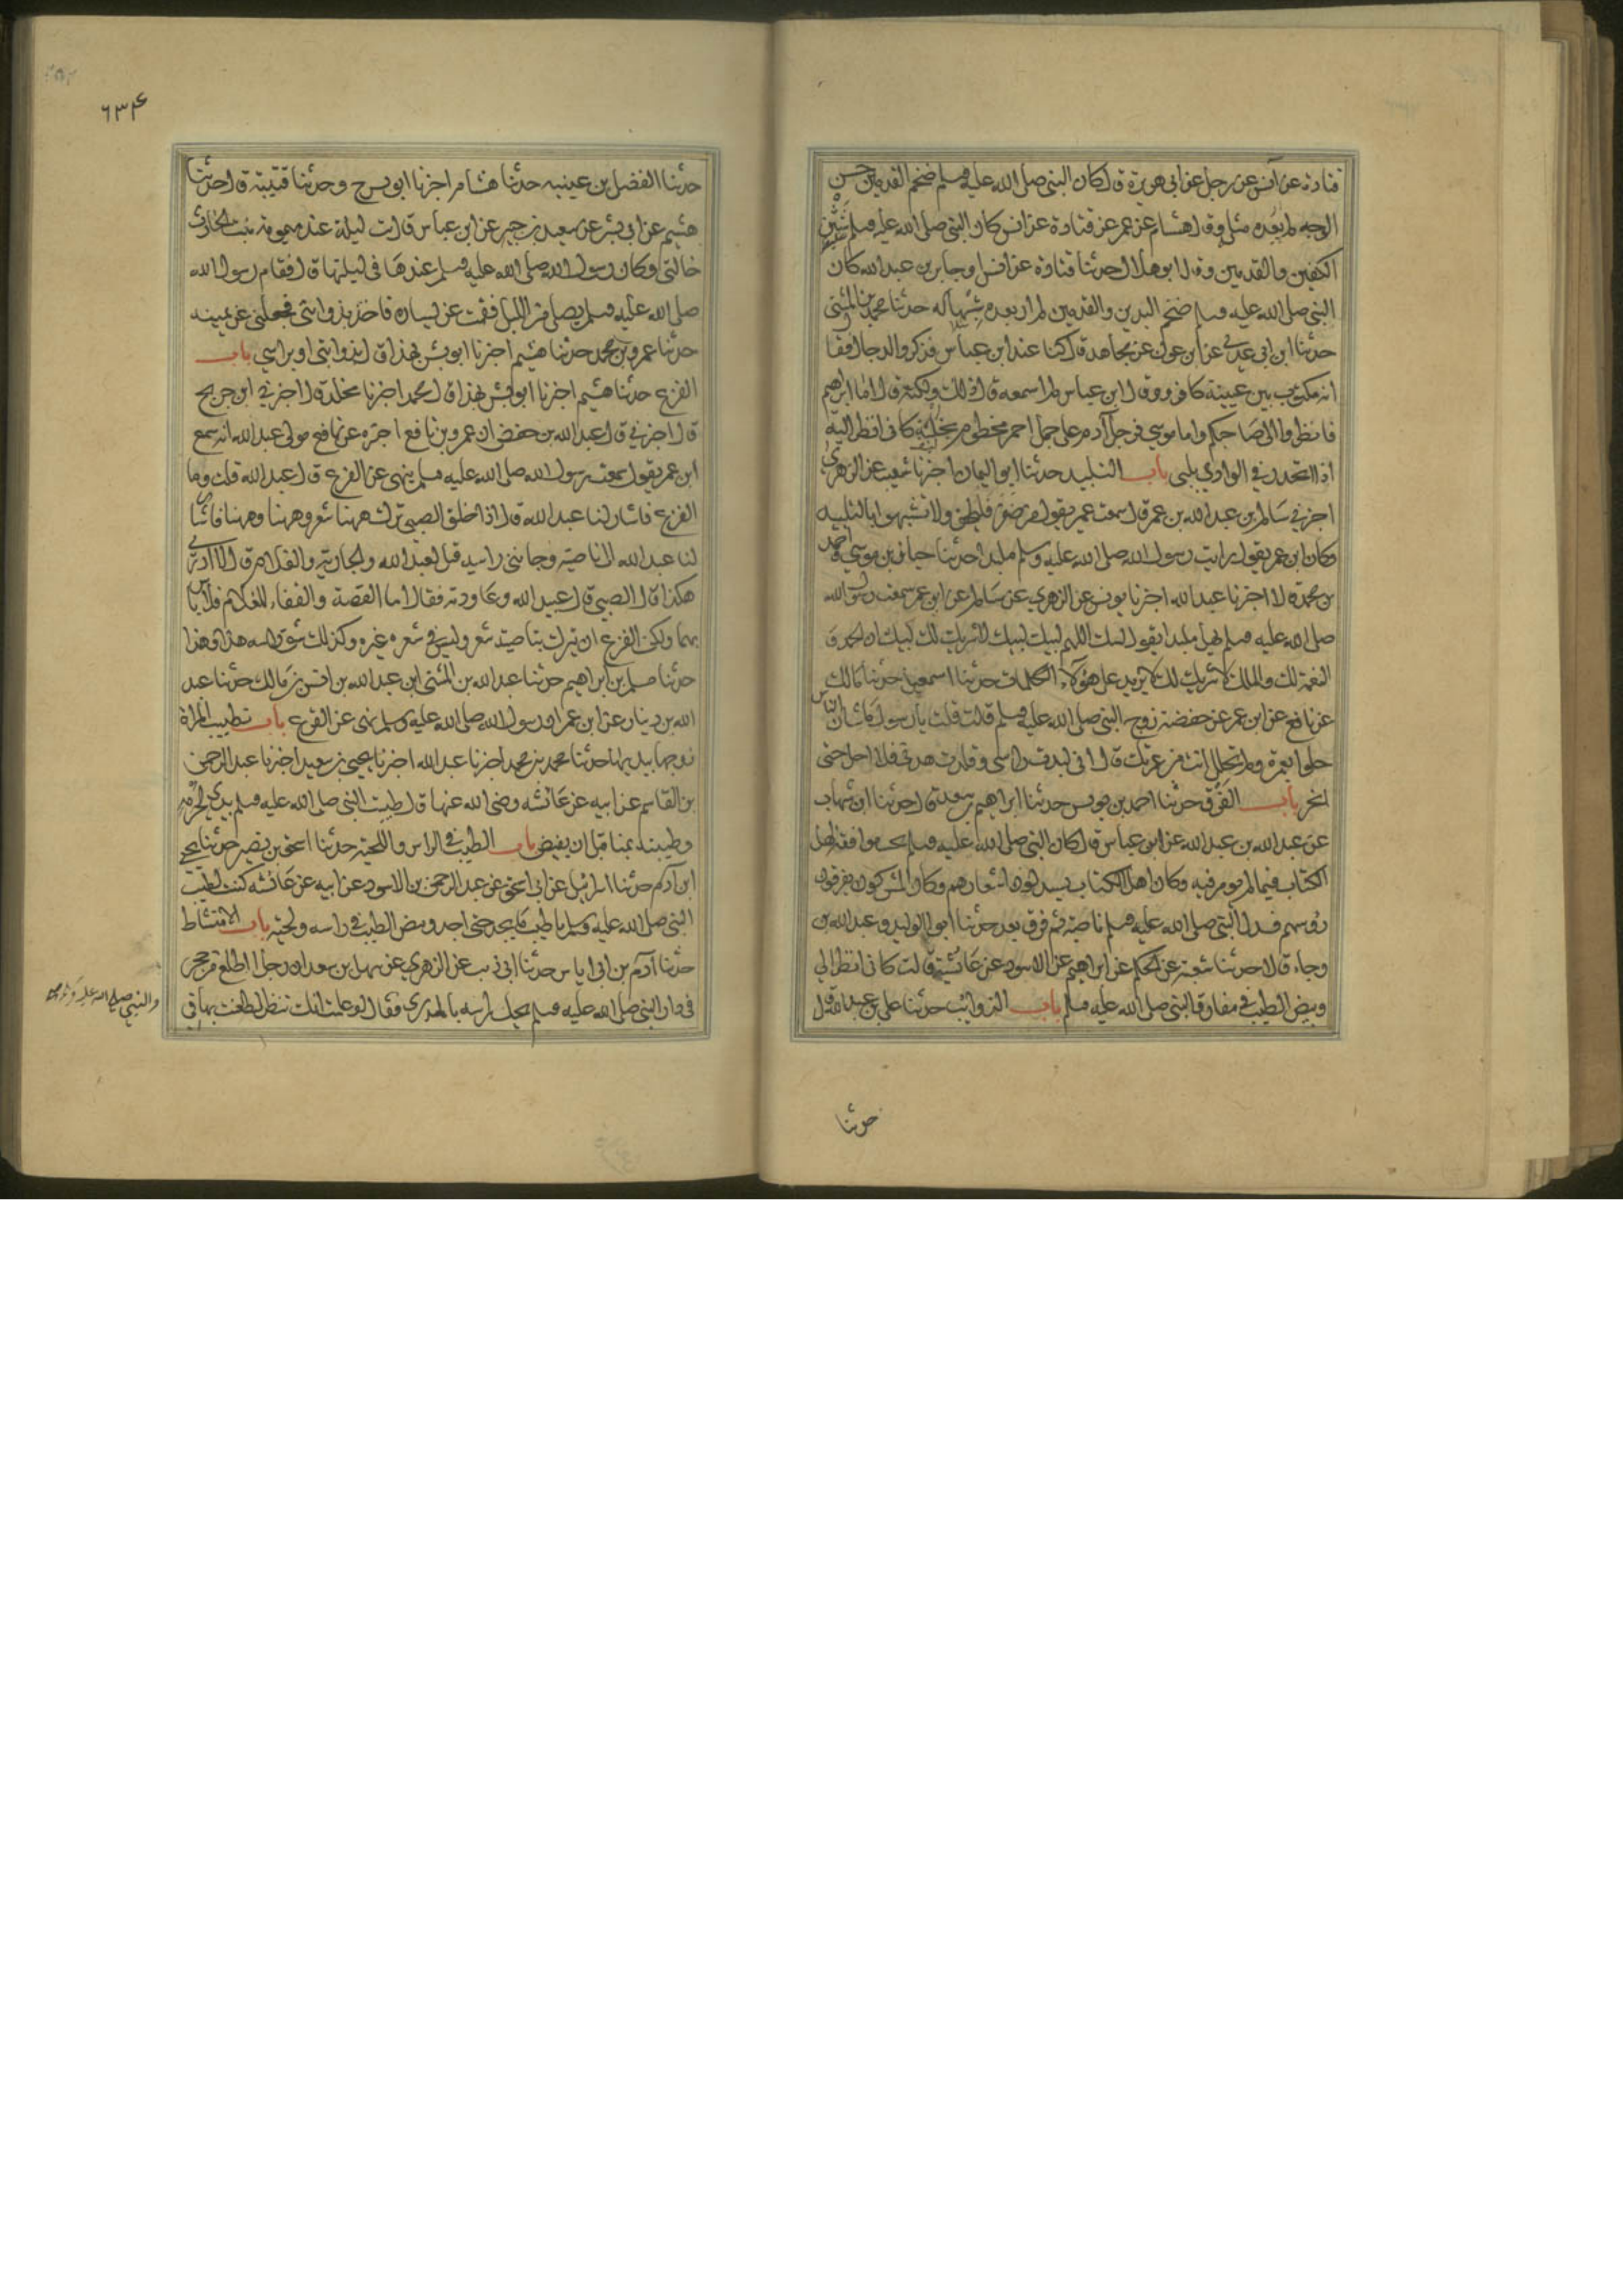 قتادة عن انس عن رجل عن ابي هريرة قال كان النبي صلى الله عليه وسلم ضخم القدمين حسن
الوجه لم ار بعده مثله وقال هشام عن معمر عن قتادة عن انس كان النبي صلى الله عليه وسلم شثن
الكفين والقدمين وقال ابو هلال حدثنا قتادة عن انس او جابر بن عبد الله كان
النبي صلى الله عليه وسلم ضخم اليدين والقدمين لم ار بعده شبها له حدثنا محمد بن المثنى
حدثنا ابن ابي عدي عن ابن عون عن مجاهد قال كنا عند ابن عباس فذكروا الدجال فقال
انه مكتوب بين عينيه كافر وقال ابن عباس لم اسمعه قال ذلك ولكنه قال اما ابراهيم
فانظروا الى صاحبكم واما موسى فرجل آدم على جمل احمر مخطوم بخلبة كاني انظر اليه
اذا انحدر في الوادي يلبي باب التلبيد حدثنا ابو اليمان اخبرنا شعيب عن الزهري
اخبرني سالم بن عبد الله بن عمر قال سمعت عمر يقول من ضفر فليحلق ولا تشبهوا بالتلبيد
وكان ابن عمر يقول رايت رسول الله صلى الله عليه وسلم ملبدا حدثنا حبان بن موسى واحمد
بن محمد قالا اخبرنا عبد الله اخبرنا يونس عن الزهري عن سالم عن ابن عمر سمعت رسول الله
صلى الله عليه وسلم يهل ملبدا يقول لبيك اللهم لبيك لبيك لا شريك لك لبيك ان الحمد و
النعمة لك والملك لا شريك لك لا يزيد على هؤلاء الكلمات حدثنا اسمعيل حدثنا مالك
عن نافع عن ابن عمر عن حفصة زوج النبي صلى الله عليه وسلم قالت قلت يا رسول ما شان الناس
حلوا بعمرة ولم تحلل انت من عمرتك قال اني لبدت راسي وقلدت هديي فلا احل حتى
انحر باب الفرق حدثنا احمد بن يونس حدثنا ابراهيم بن سعد قال حدثنا ابن شهاب
عن عبد الله بن عبد الله عن ابن عباس قال كان النبي صلى الله عليه وسلم يحب موافقة اهل
الكتاب فيما لم يومر فيه وكان اهل الكتاب يسدلون اشعارهم وكان المشركون يفرقون
رؤسهم فسدل النبي صلى الله عليه وسلم ناصيته ثم فرق بعد حدثنا ابو الوليد وعبد الله بن
رجاء قالا حدثنا شعبة عن الحكم عن ابراهيم عن الاسود عن عائشة قالت كاني انظر الى
وبيص الطيب في مفارق النبي صلى الله عليه وسلم باب الذوائب حدثنا علي بن عبد الله قال
حدثنا
٦٣۴
حدثنا الفضل بن عينيه حدثنا هشام اخبرنا ابو بسر ح وحدثنا قتيبة قال حدثنا
هشيم عن ابي بشر عن سعيد بن جبير عن ابن عباس قال بت ليلة عند ميمونة بنت الحارث
خالتي وكان رسول الله صلى الله عليه وسلم عندها في ليلتها قال فقام رسول الله
صلى الله عليه وسلم يصلي من الليل فقمت عن يساره فاخذ بذوابتي فجعلني عن يمينه
حدثنا عمرو بن محمد حدثنا هشيم اخبرنا ابو بشر بهذا قال بذوابتي او براسي باب
القزع حدثنا هشيم اخبرنا ابو بشر بهذا قال محمد اخبرنا مخلد قال اخبرني ابن جريج
قال اخبرني قال عبد الله بن حفص ان عمرو بن نافع اخبره عن نافع مولى عبد الله انه سمع
ابن عمر يقول سمعت رسول الله صلى الله عليه وسلم ينهى عن القزع قال عبد الله قلت وما
القزع فاشار لنا عبد الله قال اذا حلق الصبي ترك ههنا شعر وههنا وههنا فاشار
لنا عبد الله الى ناصيته وجانبي راسه قيل لعبد الله والجارية والغلام قال لا ادري
هكذا قال الصبي قال عبيد الله وعاودته فقال اما القصة والقفاء للغلام فلا باس
بهما ولكن القزع ان يترك بناصيته شعر وليس في شعره غيره وكذلك شق راسه هذا وهذا
حدثنا مسلم بن ابراهيم حدثنا عبد الله بن المثنى ابن عبد الله بن انس بن مالك حدثنا عبد
الله بن دينار عن ابن عمر ان رسول الله صلى الله عليه وسلم نهى عن القزع باب تطييب المراة
زوجها بيديها حدثنا محمد بن محمد اخبرنا عبد الله اخبرنا يحيى بن سعيد اخبرنا عبد الرحمن
بن القاسم عن ابيه عن عائشة رضي الله عنها قال طيبت النبي صلى الله عليه وسلم بيدي لحرمه
وطيبته بمنا قبل ان يفيض باب الطيب في الراس واللحية حدثنا اسحق بن نصر حدثنا يحيى
ابن آدم حدثنا اسرائيل عن ابي اسحق عن عبد الرحمن بن الاسود عن ابيه عن عائشة كنت اطيب
النبي صلى الله عليه وسلم باطيب ما يجد حتى اجد وبيص الطيب في راسه ولحيته باب الامتشاط
حدثنا آدم بن ابي اياس حدثنا ابن ابي ذيب عن الزهري عن سهل بن سعد ان رجلا اطلع من حجر
في دار النبي صلى الله عليه وسلم يحك راسه بالمدرى فقال لو علمت انك تنظر لطعنت بها في
والنبي صلى الله عليه وسلم